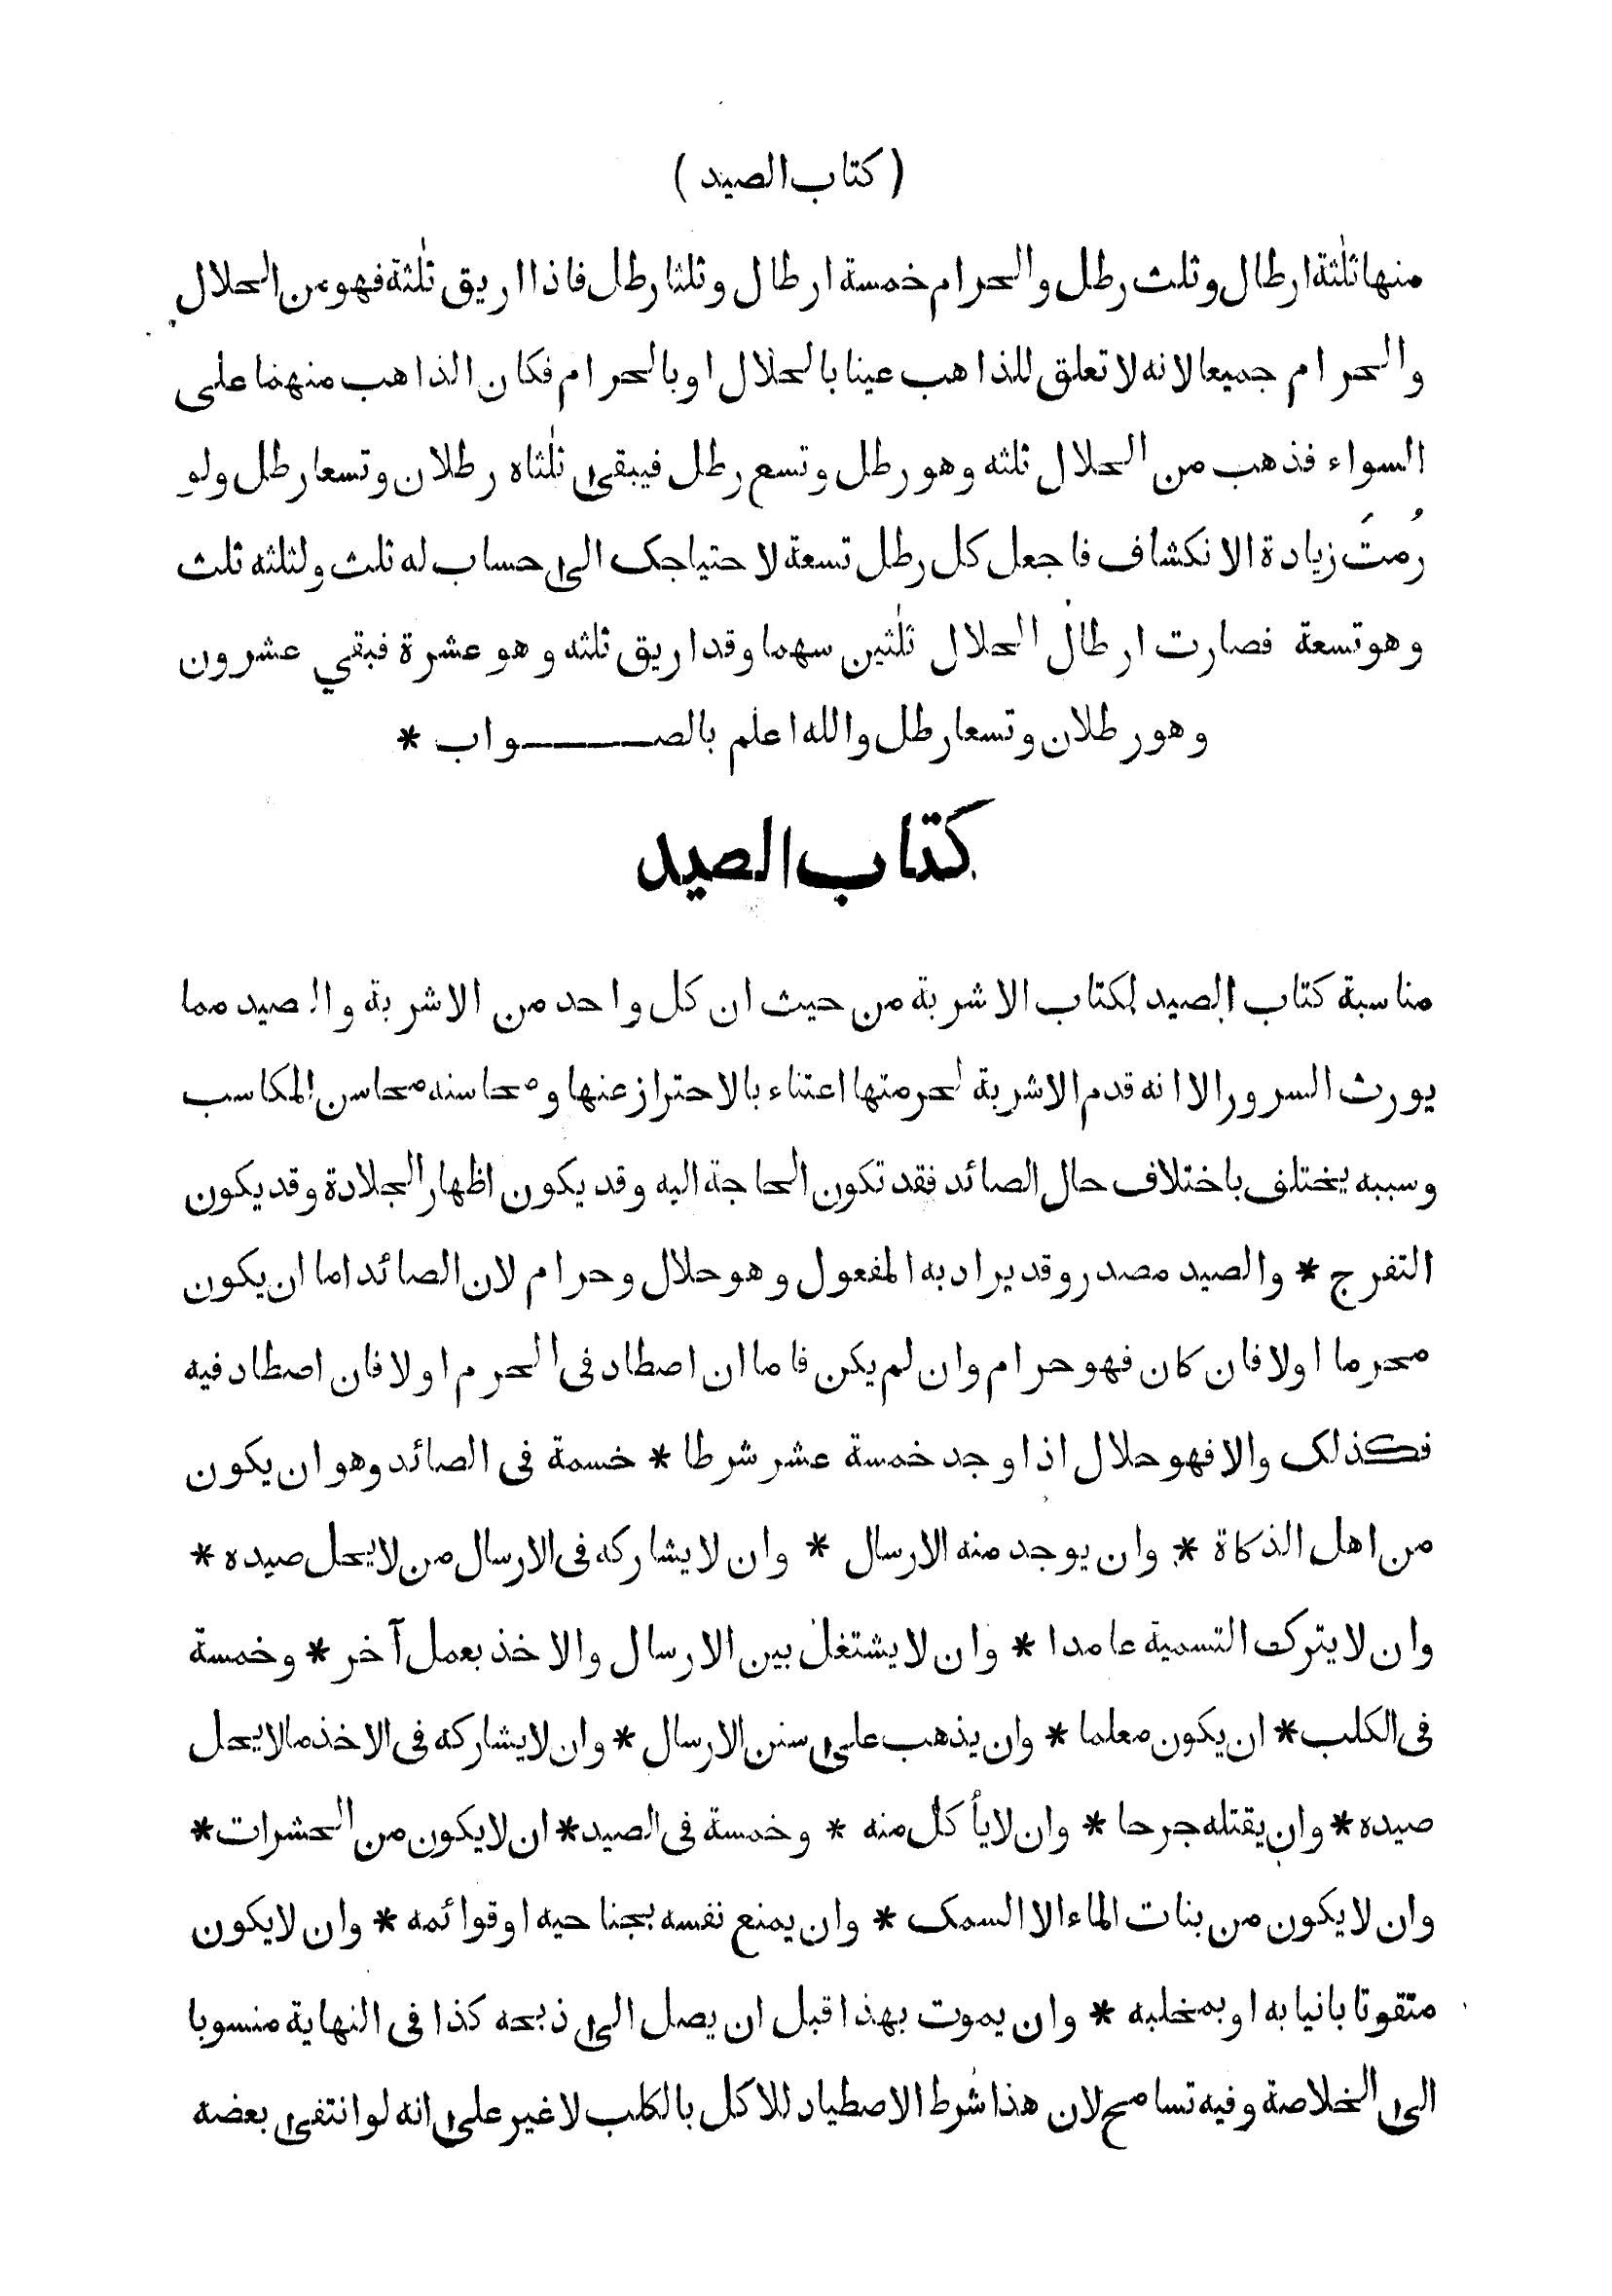 ( كتاب الصيد )
منها ثلٰثة ارطال وثلث رطل والحرام خمسة ارطال وثلثا رطل فاذا اريق ثلٰثة فهو من الحلال
والحرام جميعا لانه لا تعلق للذاهب عينا بالحلال او بالحرام فكان الذاهب منهما على
السواء فذهب من الحلال ثلثه وهو رطل وتسع رطل فيبقى ثلٰثاه رطلان وتسعا رطل ولو
رُمتَ زيادة الانكشاف فاجعل كل رطل تسعة لاحتياجك الى حساب له ثلث ولثلثه ثلث
وهو تسعة فصارت ارطال الحلال ثلٰثين سهما وقد اريق ثلثه وهو عشرة فبقي عشرون
وهو رطلان وتسعا رطل والله اعلم بالصـــــواب *
كتاب الصيد
مناسبة كتاب الصيد لكتاب الاشربة من حيث ان كل واحد من الاشربة والصيد مما
يورث السرور الا انه قدم الاشربة لحرمتها اعتناء بالاحتراز عنها ومحاسنه محاسن المكاسب
وسببه يختلف باختلاف حال الصائد فقد تكون الحاجة اليه وقد يكون اظهار الجلادة وقد يكون
التفرج * والصيد مصدر وقد يراد به المفعول وهو حلال وحرام لان الصائد اما ان يكون
محرما اولا فان كان فهو حرام وان لم يكن فاما ان اصطاد فى الحرم اولا فان اصطاد فيه
فكذلك والا فهو حلال اذا وجد خمسة عشر شرطا * خسمة فى الصائد وهو ان يكون
من اهل الذكاة * وان يوجد منه الارسال * وان لا يشاركه فى الارسال من لا يحل صيده *
وان لا يترك التسمية عامدا * وان لا يشتغل بين الارسال والاخذ بعمل آخر * وخمسة
فى الكلب * ان يكون معلما * وان يذهب على سنن الارسال * وان لا يشاركه فى الاخذ ما لا يحل
صيده * وان يقتله جرحا * وان لا يأكل منه * وخمسة فى الصيد * ان لا يكون من الحشرات *
وان لا يكون من بنات الماء الا السمك * وان يمنع نفسه بجناحيه او قوائمه * وان لا يكون
متقوتا بانيابه او بمخلبه * وان يموت بهذا قبل ان يصل الى ذبحه كذا فى النهاية منسوبا
الى الخلاصة وفيه تسامح لان هذا شرط الاصطياد للاكل بالكلب لا غير على انه لو انتفى بعضه